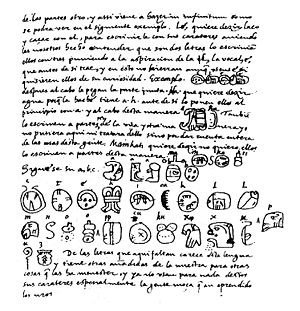 de las partes otro, y assi viene a hazer in infinitum como
se podra ver en el siguiente exemplo. Lé, quiere dezir laço
y caçar con el, para escrivirle con sus carateres aviendo
les nosotros hecho entender que son dos letras lo escrivian
ellos con tres poniendo a la aspiracion de la l, la vocal e,
que antes de si trae, y en esto no hierran aunq
quisieren ellos de su curiosidad. Exemplo.
despues al cabo le pegan la parte junta. Ha que quiere dezir
agua porq la hache tiene a, h, antes de si lo ponen ellos al
principio con a, y al cabo desta manera Tambie
lo escriven a partes de la una y otra ma nera yo
no pusiera aqui ni tratara dello sino por dar cuenta entera
de las cosas desta gente. Mainkati quiere dezir no quiero ellos
lo escriven a partes desta manera
Siguese su a, b, c.
De las letras que aqui faltan carece esta lengua
y tiene otras añadidas de la nuestra para otras
cosas q las ha menester, y ya no usan para nada destos
sus carateres especialmente la gente moça q an aprendido
los nros